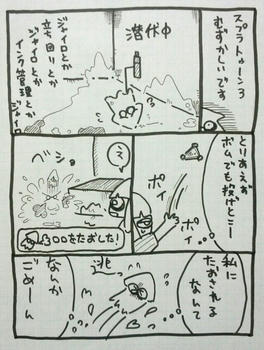 スプラトゥーン3
むずかしいです
潜伏中
ジャイロとか
立ち回りとか
インク管理とか
ジャイロとか
とりあえず
ボムでも投げとこー
ポイ
ポイ
え
ベショ
〇〇をたおした!
私に
たおされる
なんて
逃
なんか
ごめーん